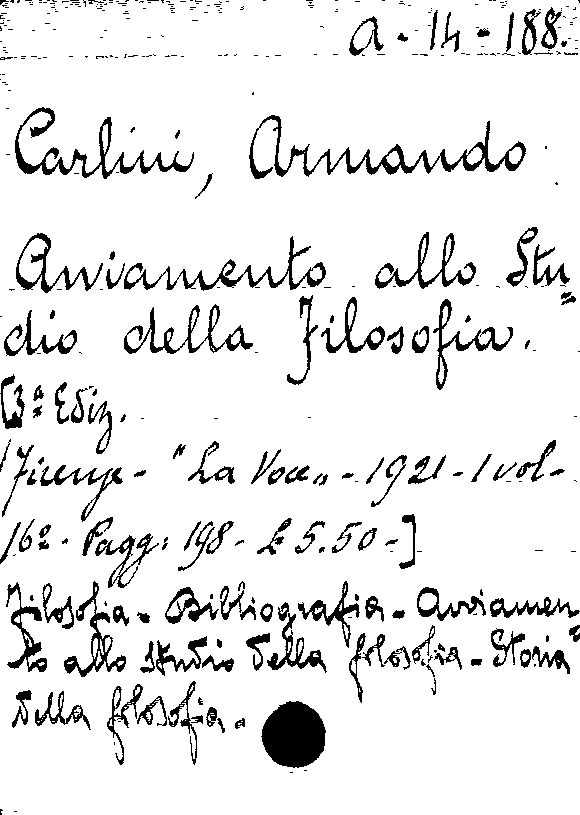 a - 14 - 188.
Carlini, Armando
Avviamento allo Stu=
dio della Filosofia.
[3ª Ediz.
Firenze - "La Voce„ - 1921 - 1 vol -
16º - Pagg: 198 - £ 5.50 -]
Filosofia - Bibliografia - Avviamen=
to allo studio della filosofia - Storia
della filosofia -